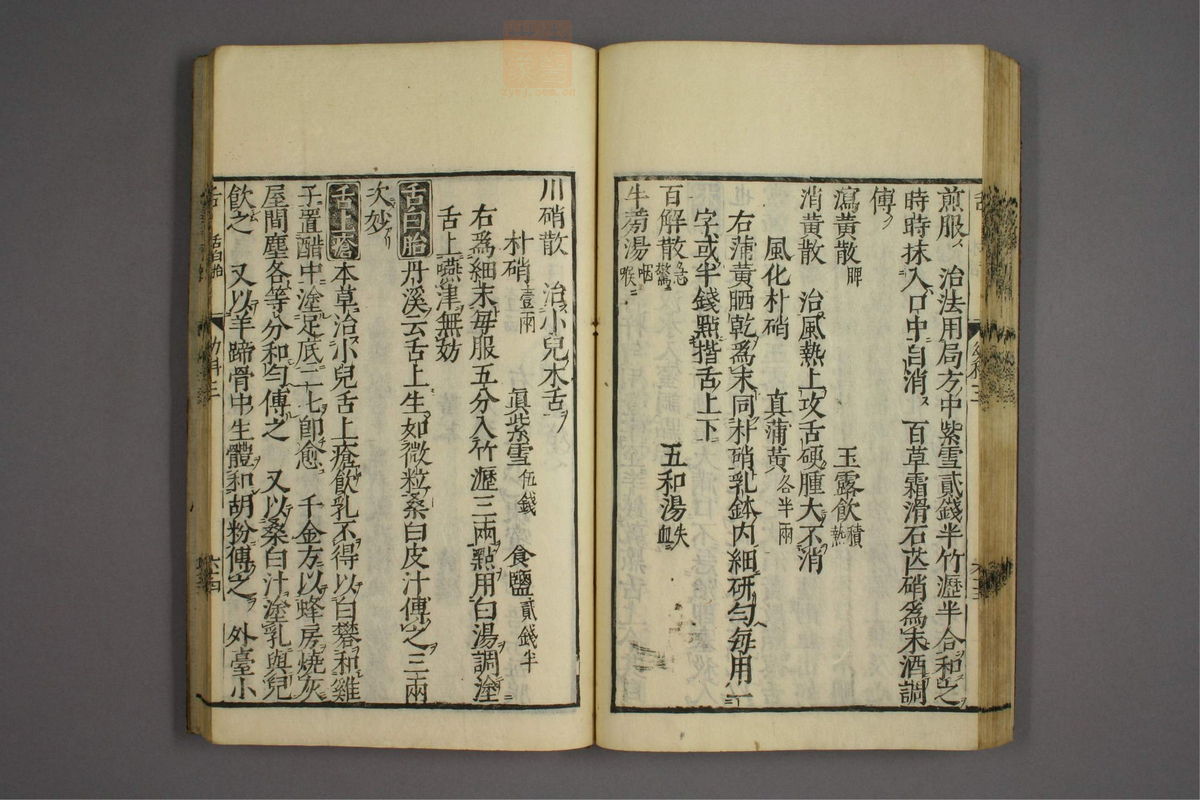 煎服 治法用局方中紫雪貳錢半竹瀝半合和之
時時抹入口中自消 百草霜滑石芒硝爲末酒調
傅
瀉黃散脾 玉露飮積熱
消黃散 治風熱上攻舌硬腫大不消
風化朴硝 真蒲黃各半兩
右蒲黃晒乾爲末同朴硝乳鉢內細研勻每用一
字或半錢點揩舌上下
百解散急驚 五和湯失血
牛蒡湯咽喉
川硝散 治小兒木舌
朴硝壹兩 眞紫雪伍錢 食鹽貳錢半
右爲細末每服五分入竹瀝三兩點用白湯調塗
舌上嚥津無妨
舌白胎 丹溪云舌上生如微粒桑白皮汁傅之三兩
次妙
舌上瘡 本草治小兒舌上瘡飮乳不得以白礬和雞
子置醋中塗足底二七卽愈 千金方以蜂房燒灰
屋間塵各等分和勻傅之 又以桑白汁塗乳與兒
飮之 又以羊蹄骨中生髓和胡粉傅之 外臺小
舌 舌白胎 幼科三 六四